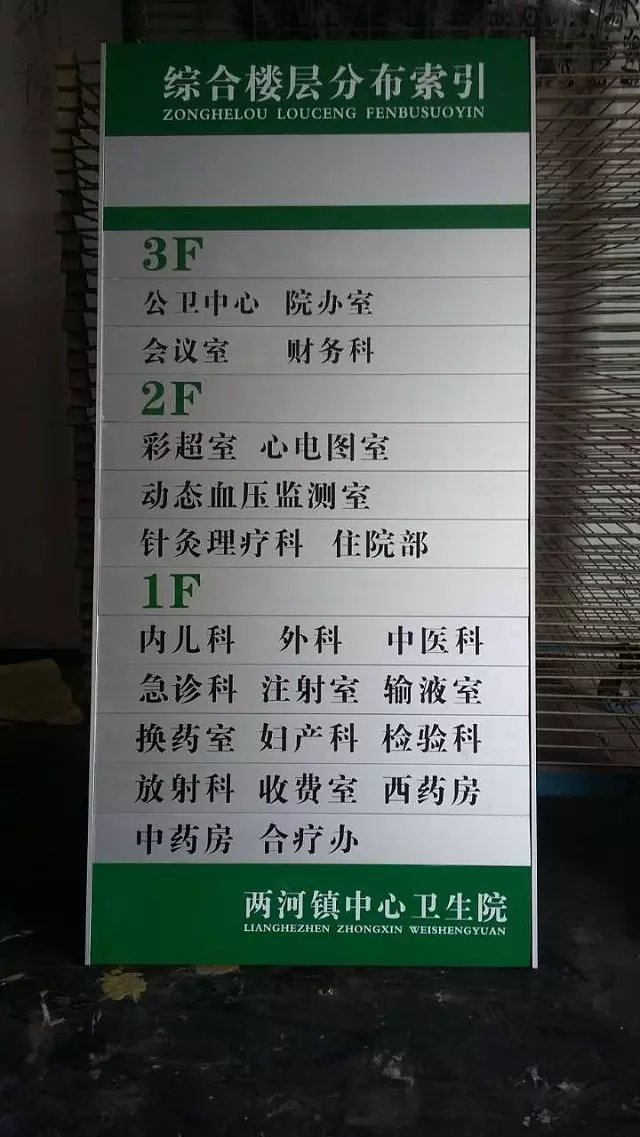 综合楼层分布索引
ZONGHELOU LOUCENG FENBUSUOYIN
3F
公卫中心 院办室
会议室 财务科
2F
彩超室 心电图室
动态血压监测室
针灸理疗科 住院部
1F
内儿科 外科 中医科
急诊科 注射室 输液室
换药室 妇产科 检验科
放射科 收费室 西药房
中药房 合疗办
两河镇中心卫生院
LIANGHEZHEN ZHONGXIN WEISHENGYUAN